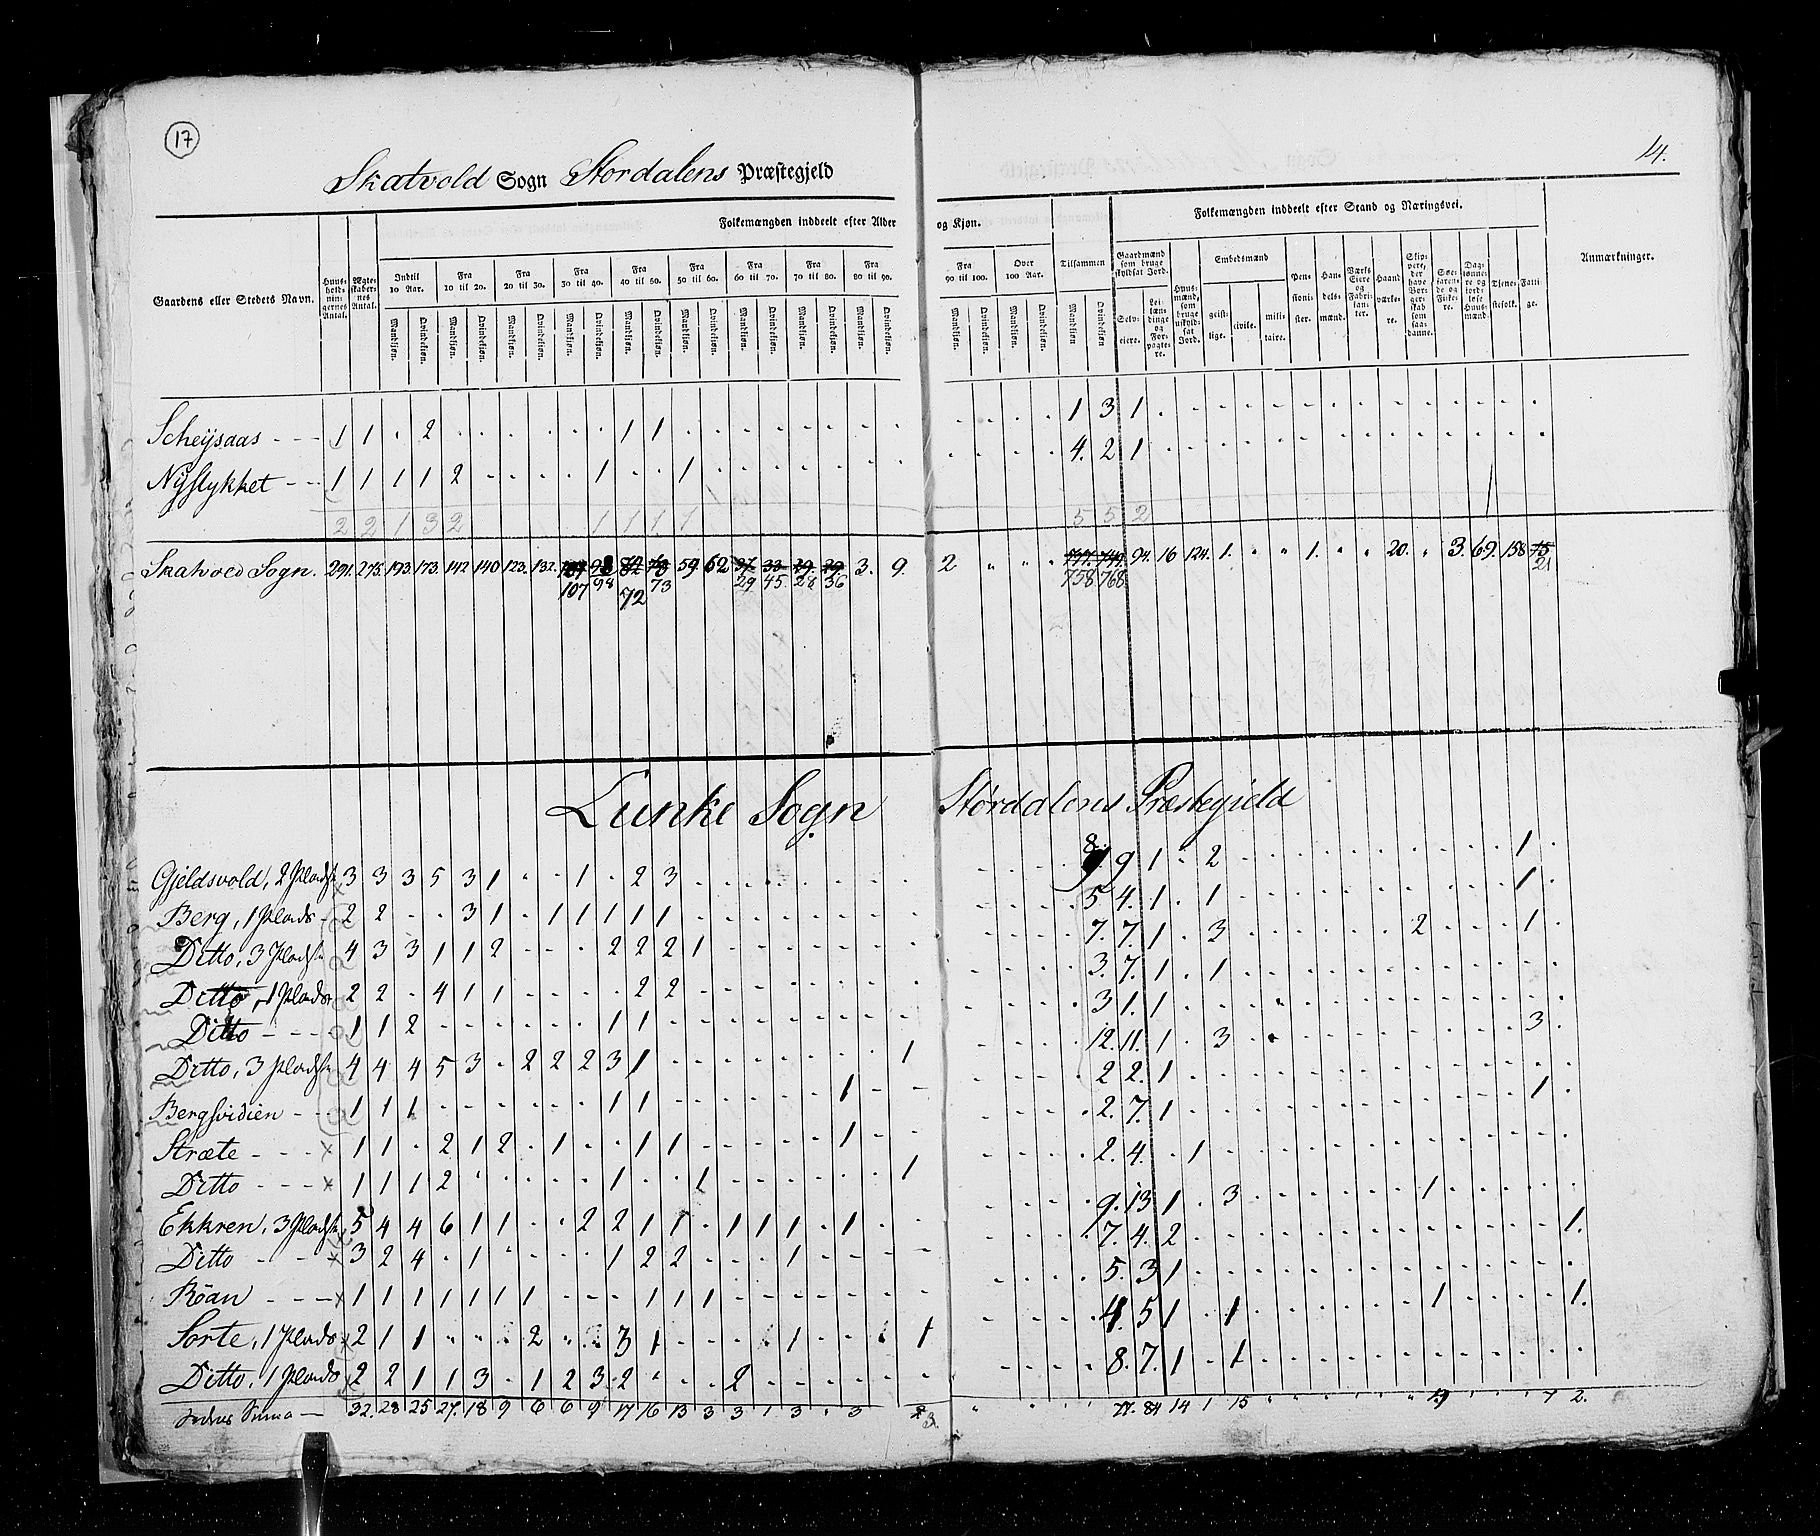 17
14.
Skatvold Sogn Stordalens Præstegjeld
Gaardens eller Stedets Navn.
Huus-holdnin-gernes Antal.
Ægte-skaber-nes Antal.
Folkemængden inddeelt efter Alder og Kjøn.
Indtil 10 Aar.
Fra 10 til 20.
Fra 20 til 30.
Fra 30 til 40.
Fra 40 til 50.
Fra 50 til 60.
Fra 60 til 70.
Fra 70 til 80.
Fra 80 til 90.
Fra 90 til 100.
Over 100 Aar.
Tilsammen
Mandkjøn. Qvindekjøn.
Folkemængden inddeelt efter Stand og Næringsvei.
Gaardmænd som bruge skyldsat Jord.
Selv-eiere.
Lei-lændinge og For-pagte-re.
Huus-mænd, som bruge uskyld-sat Jord.
Embedsmænd
geist-lige. civile. mili-taire.
Pen-sioni-ster.
Han-dels-mænd.
Værks Eiere og Fabri-kan-ter.
Haand værke-re.
Skip-pere, der have Bor-ger-skab som saa-danne.
Søe-farende og Fiske-re.
Dag-lønne-re og jord-løse Huus-mænd.
Tjene-stefolk.
Fatti-ge.
Anmærkninger.
Scheijsaas - - - 1 1 . 2 . . . . . . 1 1 . . . . . . . . 1 3 1
Nijstykket - - - 1 1 1 1 2 . . . . 1 . . 1 . . . . . . . 4. 2 1
2 2 1 3 2 1 1 1 1 5 5 2
Skatvold Sogn. 291. 275. 193. 173. 142 140 123. 132. 107 98 72 73 59 62 29 45. 28 36 3. 9. 2 " " . 758. 768. 94. 16 124. 1. " " 1. " " 20. " 3. 69. 158 21
Lunke Sogn Størdalens Præstegjeld
Gjeldsvold, 2 Pladse 3 3 3 5 3 1 - - 1 . 2 3 8 9 1 . 2 1
Berg, 1 Plads - 2 2 - . 3 1 - 1 1 1 1 1 5 4. 1 . 1 1
Ditto, 3 Pladse 4 3 3 1 1 2 - - - 2 2 2 1 7. 7. 1 . 3 2 1
Ditto, 1 Plads 2 2 - 4 1 1 - - - - 2 2 3. 7. 1 . 1
Ditto - - - 1 1 2 - - - - - - 1 1 3 1. 1
Ditto, 3 Pladse 4 4 4 5 3 - 2 2 2 3 1 1 12. 11. 1 . 3 3
Bergsvidien - - 1 1 1 - - - - - - 1 1 1 2 2. 1
Stræte - - - 1 1 . 2 1 2 - 1 - . 1 1 1 2. 7. 1 1
Ditto - - - 1 1 1 2 . . . . . 1 . . 1 1 2. 4. . 1
Ekkren, 3 Pladse 5 4 4 6 1 1 . . 2 2 1 1 . 1 1 1 . 1 9. 13 1 . 3 1
Ditto - - 3 2 4 . 1 . . . . 1 2 2 1 7. 4. 2 1.
Röan - - - 1 1 1 1 1 1 1 - - - 1 1 1 5. 3 1
Sorte, 1 Plads 2 1 1 " " . 2 " . 3 1 1 1 4 5 1 . 1 1 1.
Ditto, 1 Plads 2 2 1 1 3 . 1 2 3 2 2 8. 7. 1 . 1
Summa — 32. 28 25 27. 18 9 6 6 9 17 16 13 3 3 1 3 . 3 3. 77. 84 14 1 15 7 2.